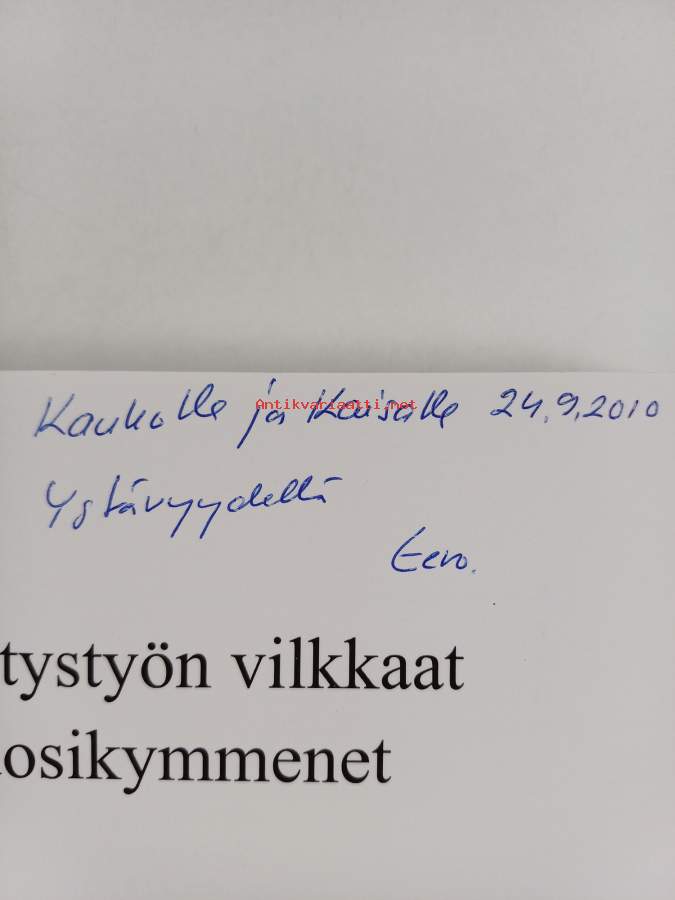 Kaukolle ja Kaisalle 24.9.2010
Antikvariaatti.net
Ystävyydellä
Eero.
tystyön vilkkaat
osikymmenet